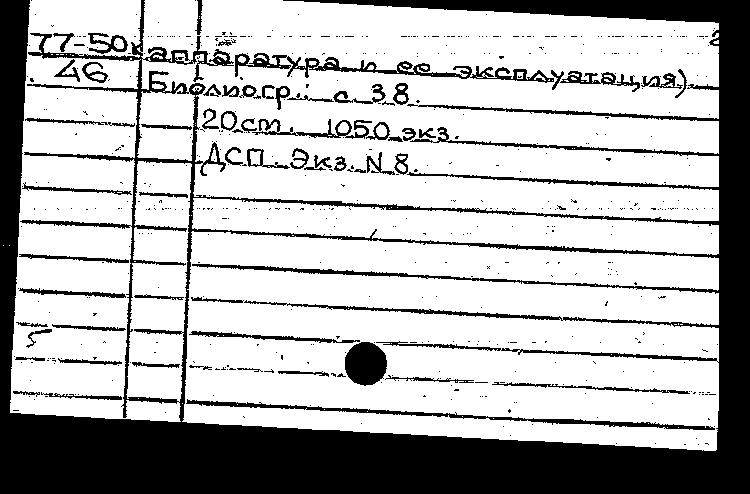 2
77-50к аппаратура и ее эксплуатация).
46 Библиогр.: с. 38.
20 cm. 1050 экз.
ДСП. Экз. N 8.
5